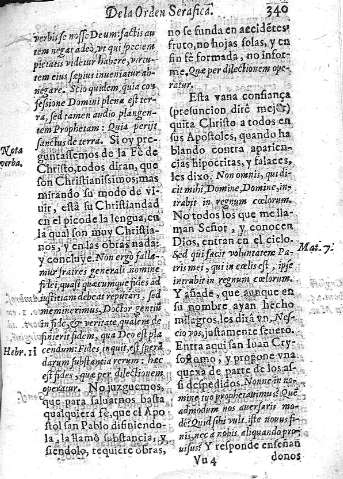 De la Orden Serafica.
340
verbis se nosse Deum: factis au
tem negat adeò, vt qui speciem
pietatis videtur habere, virtu-
tem eius sepius inueniatur ab-
negare. Scio quidem, quia con-
fesione Domini plena est ter-
ra, sed tamen audio plangen-
tem Prophetam: Quia perijt
sanctus de terra. Si oy pre-
guntassemos de la Fè de
Christo, todos diran, que
son Christianissimos; mas
mirando su modo de vi-
uir, està su Christiandad
en el pico de la lengua, en
la qual son muy Christia-
nos, y en las obras nada:
y concluye. Non ergo falla-
mur fratres generali nomine
fidei, quasi quæcumque fides ad
iustitiam debeat reputari, sed
meminerimus, Doctor gentiũ
in fide, & veritate, qualem de
finierit fidem, qua Deo est pla
cendum: Fides inquit, est speran
darum substantia rerum: hæc
est fides, quæ per dilectionem
operatur. No juzguemos,
que para saluarnos basta
qualquiera fè, que el Apo-
stol san Pablo difiniendo-
la, la llamò substancia, y
siendolo, requiere obras,
Nota
verba.
Hebr. 11
no se funda en accidẽtes
fruto, no hojas solas, y en
fin fè formada, no infor-
me. Quæ per dilectionem ope-
ratur.
Esta vana confiança
(presuncion dirè mejor)
quita Christo a todos en
sus Apostoles, quando ha
blando contra aparien-
cias hipocritas, y falaces,
les dixo. Non omnis, qui di-
cit mihi, Domine, Domine, in-
trabit in regnum cœlorum.
No todos los que me lla-
man Señor, y conocen
Dios, entran en el cielo.
Sed qui facit voluntatem Pa-
tris mei, qui in cœlis est, ipse
intrabit in regnum cœlorum.
Y añade, que aunque en
su nombre ayan hecho
milagros, les dirà vn, Nes-
cio vos, justamente seuero.
Entra aqui san Iuan Cry-
sostomo, y propone vna
quexa de parte de los as-
si despedidos. Nonne in no-
mine tuo prophetauimus? Quẽ
admodum nos auersaris mo-
dò? Quid sibi vult iste nouus fi-
nis, nec à nobis aliquando pro-
uisus? Y responde enseñan
Mat. 7.
Vu 4
donos